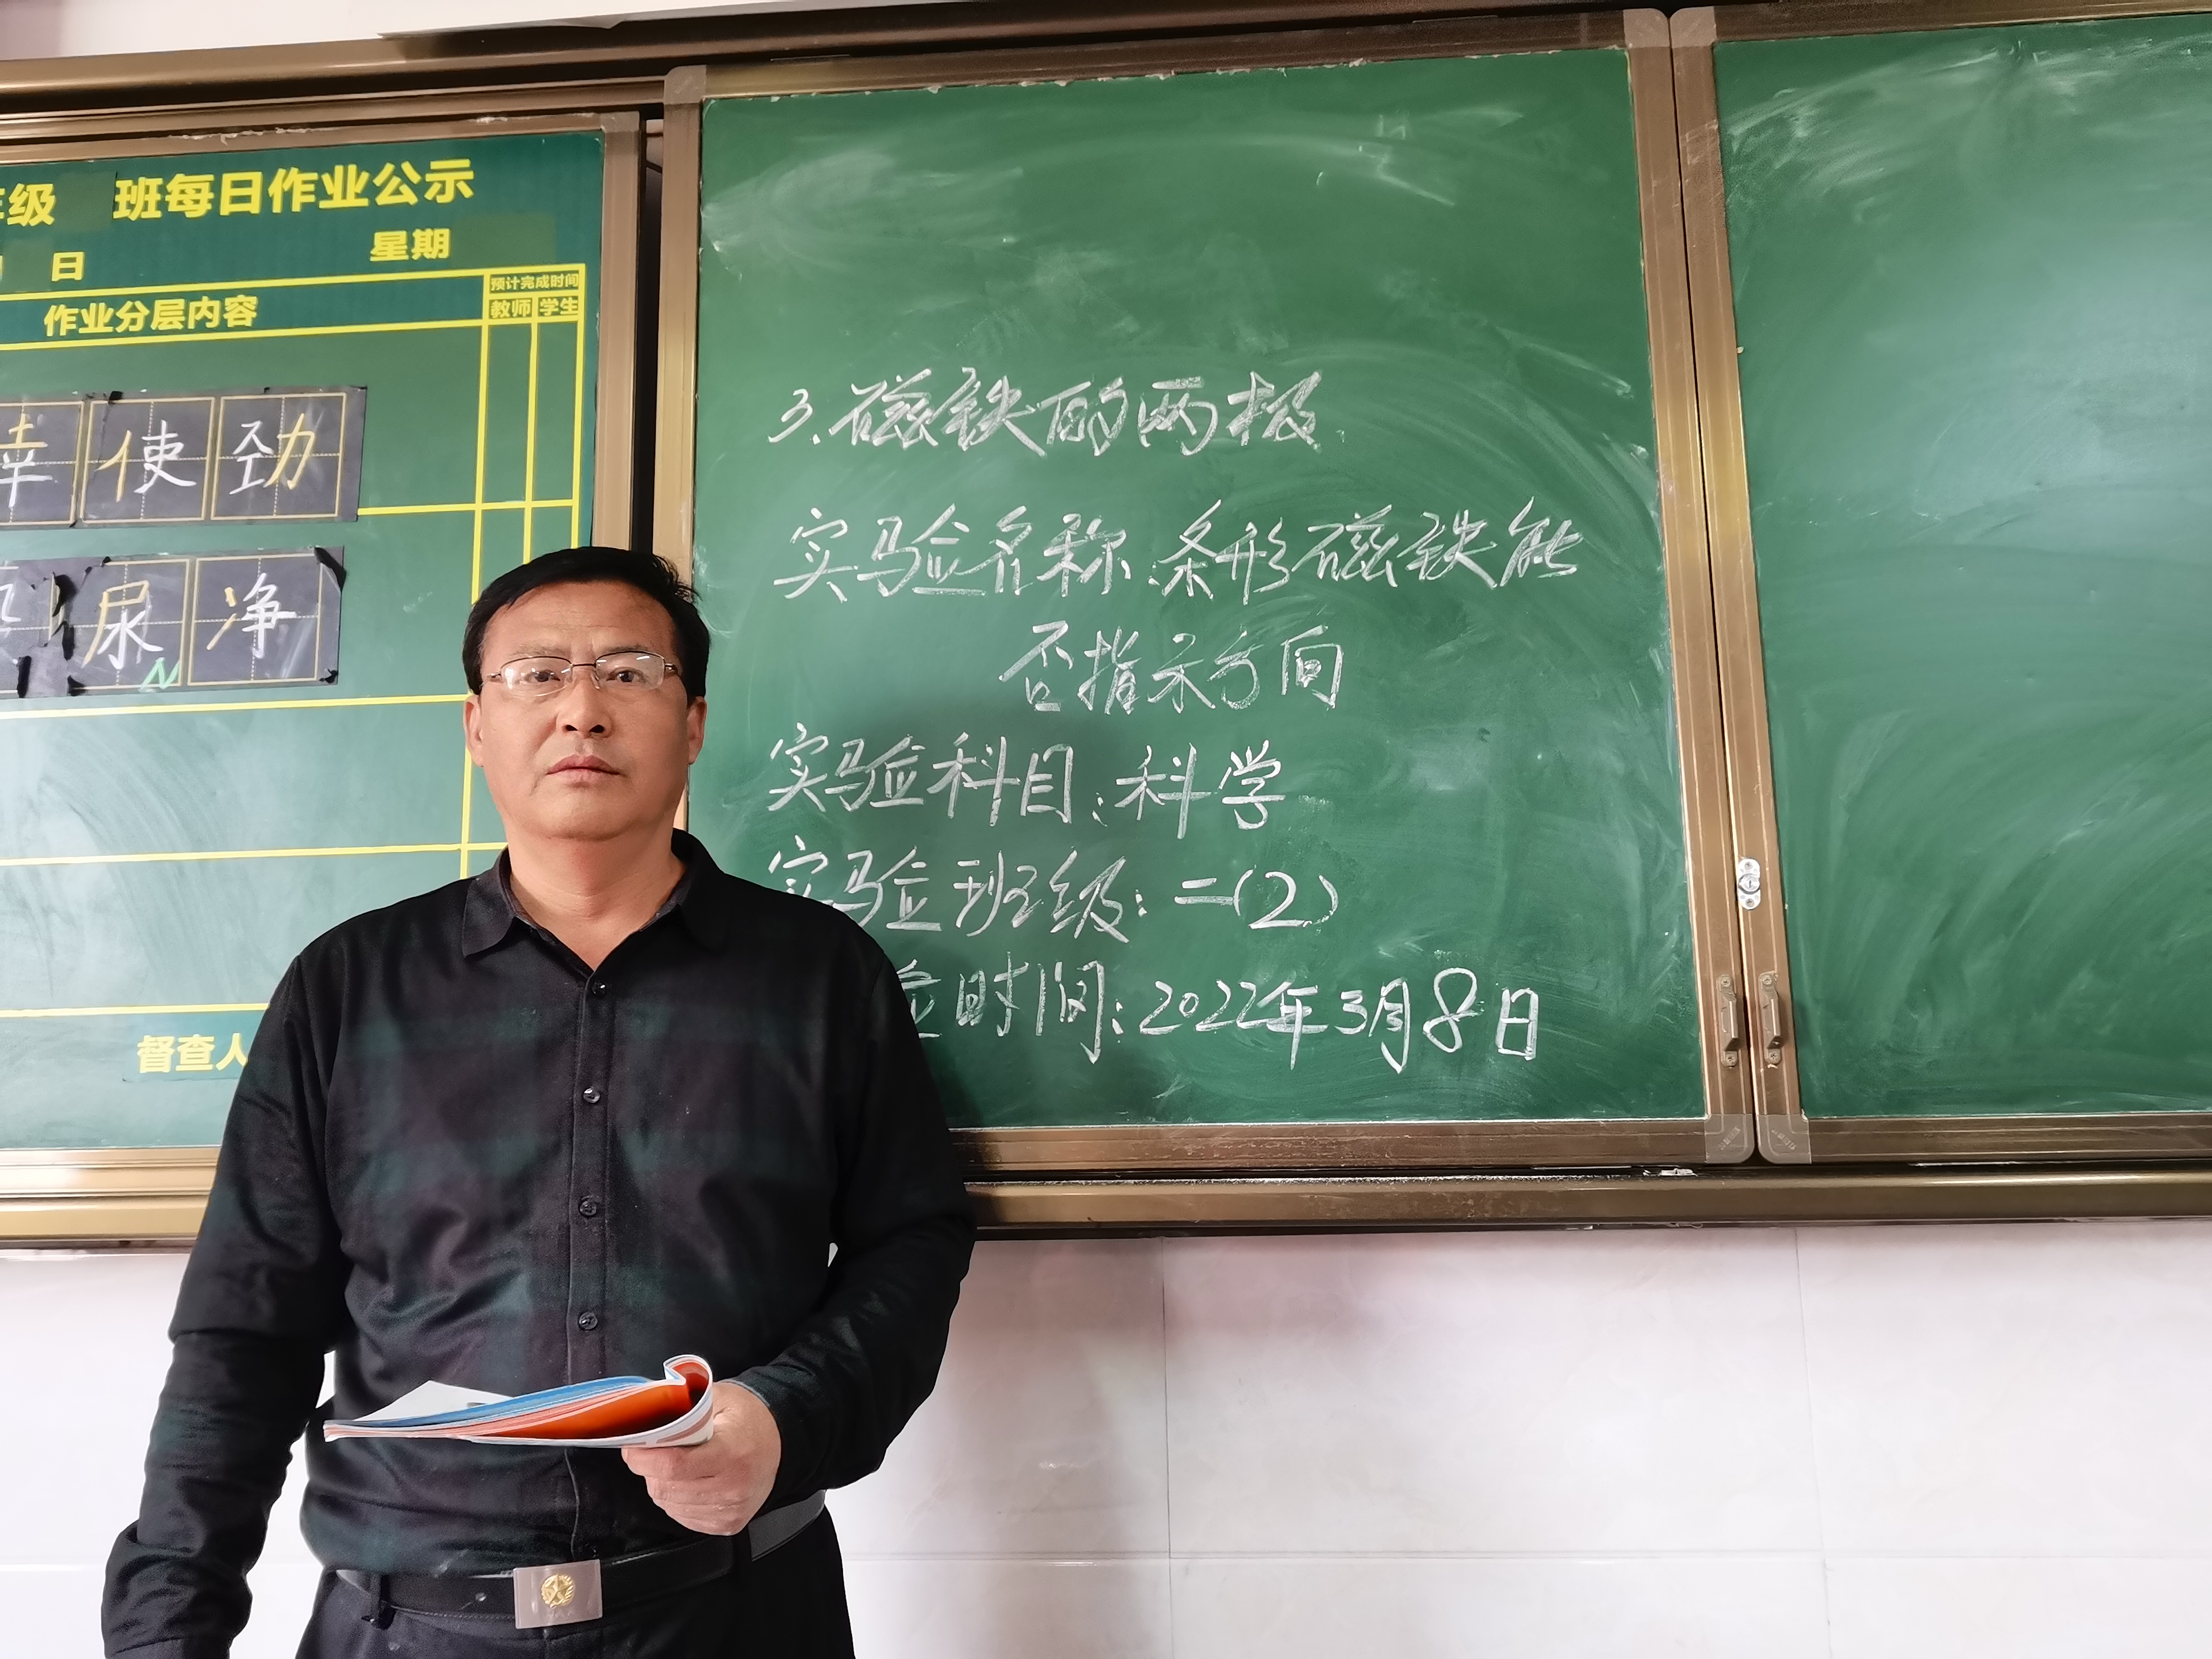 级 班每日作业公示
日 星期
作业分层内容
预计完成时间
教师 学生
使 劲
尿 净
督查人
3.磁铁的两极
实验名称:条形磁铁能
否指示方向
实验科目:科学
实验班级:二(2)
时间:2022年3月8日